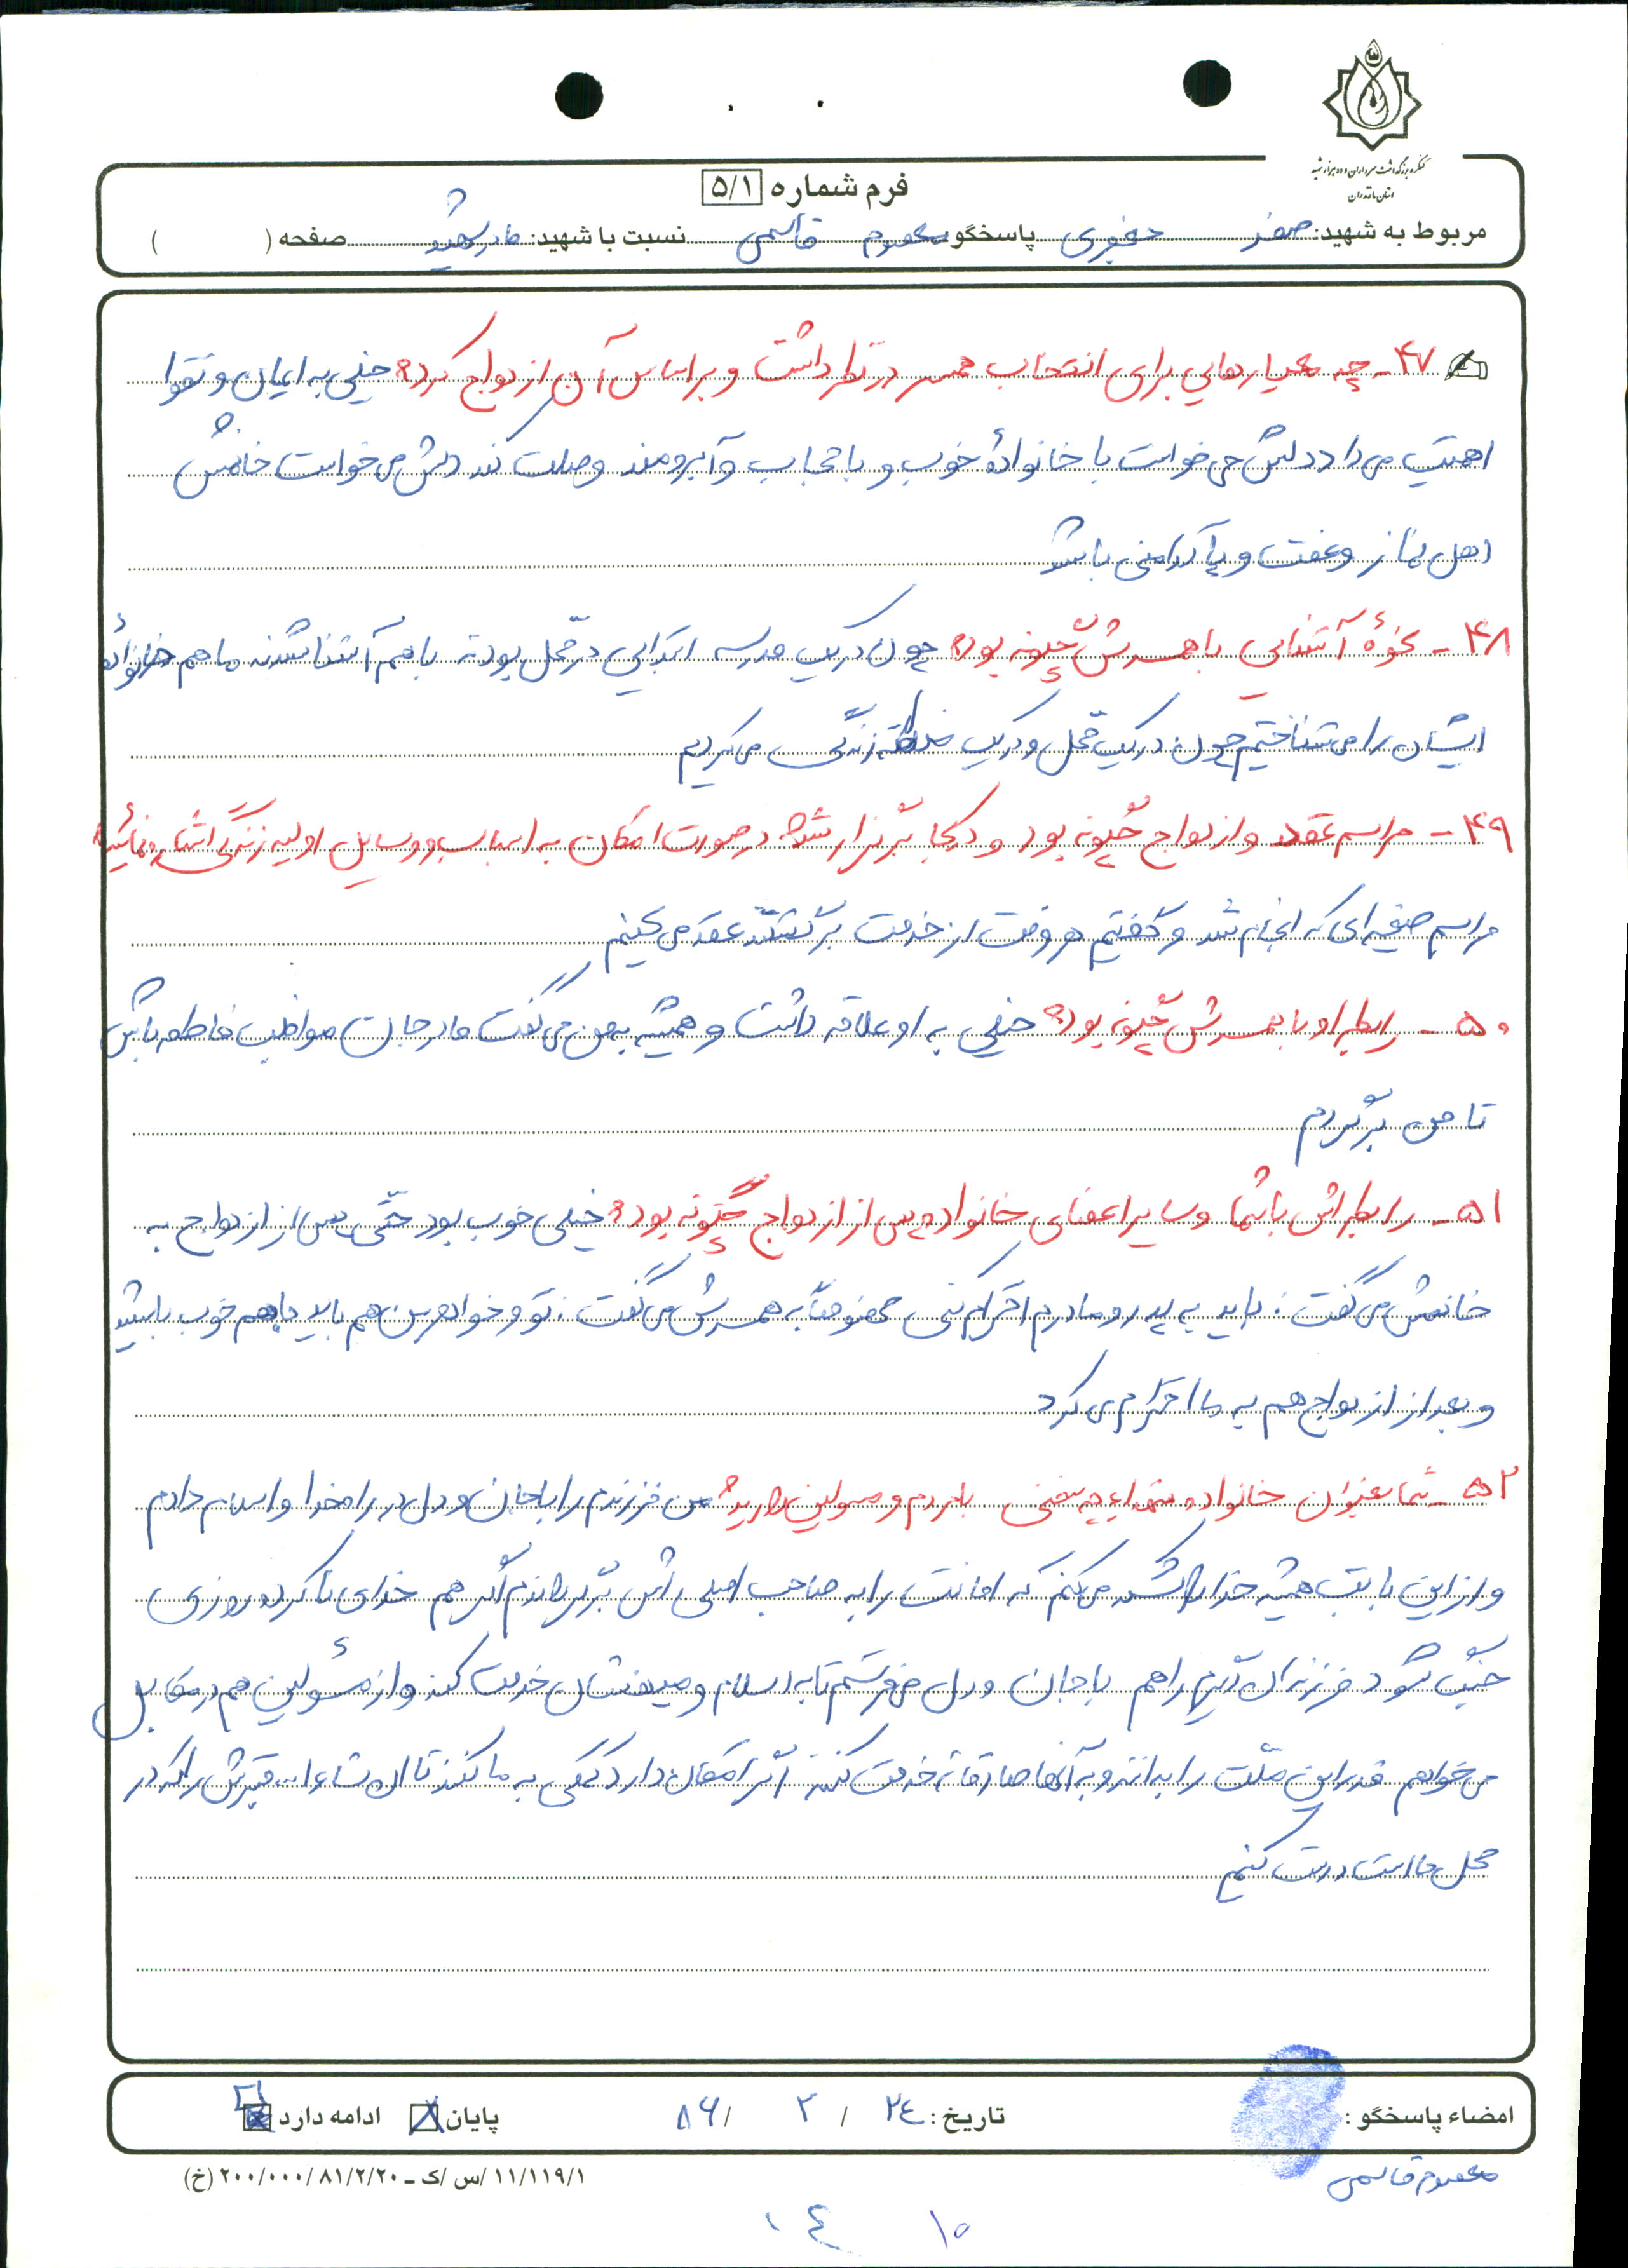 کنگره بزرگداشت سرداران و ده هزار شهید
استان مازندران
فرم شماره ۵/۱
مربوط به شهید: صفر جعفری پاسخگو معصوم قاسمی نسبت با شهید: مادر شهید صفحه ( )
۴۷- چه معیارهایی برای انتخاب همسر در نظر داشت و بر اساس آن ازدواج کرد؟ خیلی به ایمان و تقوا
اهمیت می داد دلش می خواست با خانوادهٔ خوب و با حجاب و آبرومند وصلت کند دلش می خواست خانمش
اهل نماز و عفت و پاکدامنی باشد
۴۸- نحوهٔ آشنایی با همسرش چگونه بود؟ چون در یک مدرسه ابتدایی در محل بودند با هم آشنا شدند ما هم خانوادهٔ
ایشان را می شناختیم چون در یک محل و در یک زندگی می کردیم
۴۹- مراسم عقد و ازدواج چگونه بود و در کجا برگزار شد؟ در صورت امکان به اسباب و وسایل اولیه زندگی اشاره نمائید؟
مراسم صیغه ای که انجام شد و گفتیم هر وقت از خدمت برگشتند عقد می کنیم
۵۰- رابطه او با همسرش چگونه بود؟ خیلی به او علاقه داشت و همیشه به من می گفت مادر جان مواظب فاطمه باش
تا من برگردم
۵۱- رابطه اش با شما و سایر اعضای خانواده پس از ازدواج چگونه بود؟ خیلی خوب بود حتّی پس از ازدواج به
خانمش می گفت: باید به پدر و مادرم احترام کنی مخصوصاً به همسرش می گفت: تو و خواهر من هم باید باهم خوب باشید
و بعد از ازدواج هم به ما احترام می کرد
۵۲- شما بعنوان خانواده شهداء چه سخنی با مردم و مسولین دارید؟ من فرزندم را با جان و دل در راه خدا و اسلام دادم
و از این بابت همیشه خدا را شکر می کنم که امانت را به صاحب اصلی اش برگرداندم اگر هم خدای ناکرده روزی
جنگ شود فرزندان دیگرم را هم با جان و دل می فرستم تا به اسلام و میهنشان خدمت کند و از مسئولین هم در مقابل
می خواهم قدر این ملّت را بدانند و به آنها صادقانه خدمت کنند اگر امکان دارد کمکی به ما کنند تا ان شاءالله قبرش را که در
محل ما است درست کنیم
امضاء پاسخگو : تاریخ: ۲۴ / ۲ / ۸۶ پایان ادامه دارد
معصوم قاسمی
۱۱/۱۱۹/۱ /س /ک – ۸۱/۲/۲۰ /۲۰۰/۰۰۰ (خ)